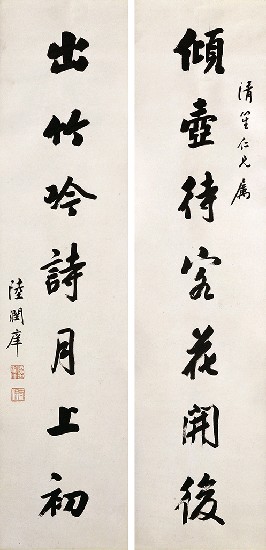 傾壺待客花開後
清笙仁兄屬
出竹吟詩月上初
陸潤庠